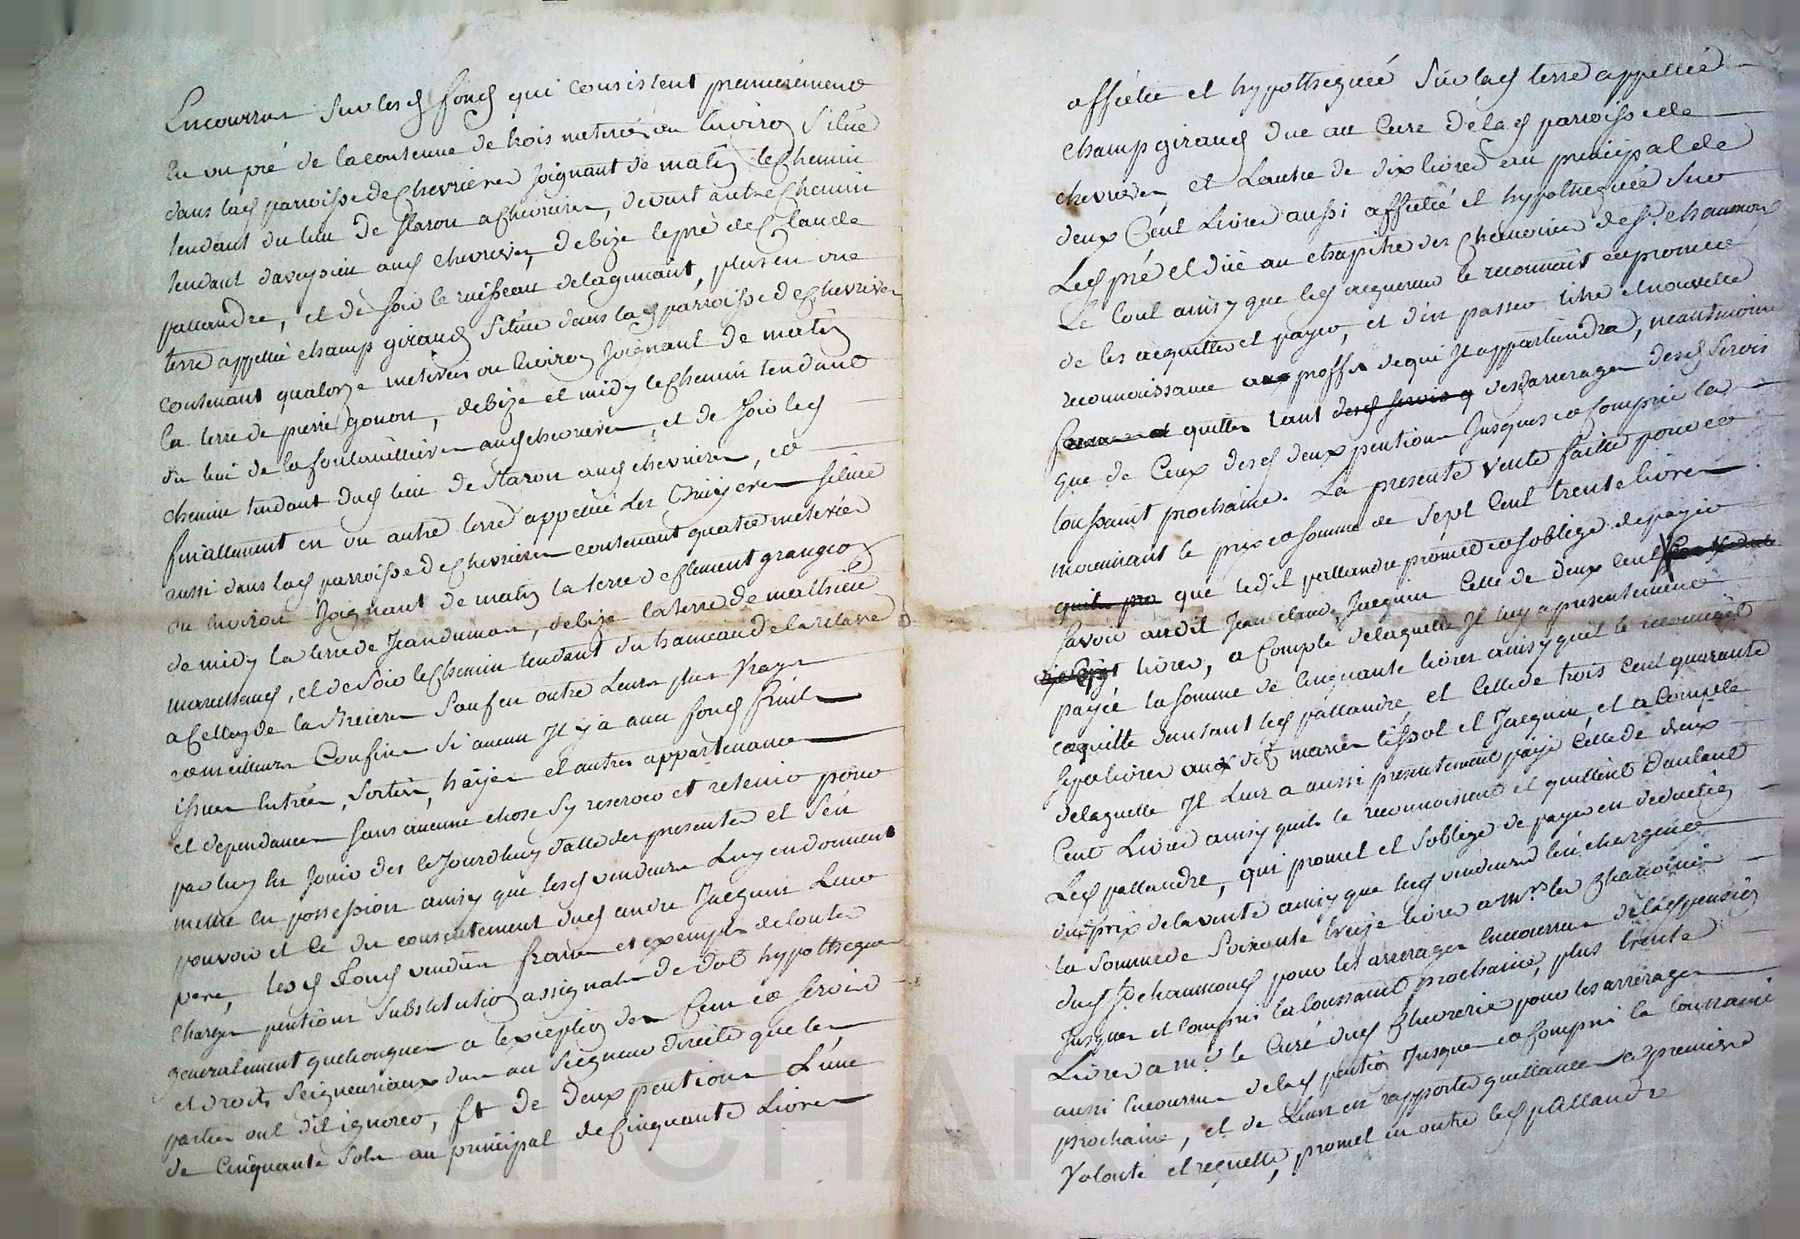 Encourrus sur lesd fonds qui consistent premierement
En un pré de la contenue de trois meterés ou Environ Situé
dans lad parroisse de chevrieres Joignant de matin le chemin
tendant du lieu de Staron a chevrieres, de vent autre chemin
tendant d'aveysieu aud chevrieres, de bize le pré de Claude
pallandre, et de Soir le ruisseau de lagimont, plus en une
terre appellée champ giraud Située dans lad parroisse de chevrieres
contenant quatorze meterées ou Environ Joignant de matin
la terre de pierre gonon, de bize et midy le chemin tendant
du lieu de la foulouilliere aud chevrieres, et de Soir led
chemin tendant dud lieu de Staron aud chevrieres, et
finallement en un autre terre appellée Les Bruyeres située
aussi dans lad parroisse de chevrieres contenant quatre meterées
ou Environ Joignant de matin la terre de Clement grangeon
de midy la terre de Jean dumas, de bize la terre de mathieu
marechand, et de Soir le chemin tendant du hameau de
a Celluy de la Sauf en outre Leurs plus Vrays
et meilleurs Confins Si aucun Il y a aux fonds fruits
issues Entrées, Sorties, hayes et autres appartenances
et dependances sans aucune chose Sy reserver et retenir pour
par luy En Jouir des le Jourdhuy datte des presentes et S'en
mettre en possession ainsy que lesd vendeurs Luy en donnent
pouvoir et Ce du consentement dud andre Jacquin Leur
pere, lesd Fonds vendus francs et exempts de toutes
charges pentions Substitution assignats de dot hypotheques
generalement quelconques a l'exception des Cens et Servis
et droits Seigneuriaux dus au Seigneur directe que les
parties ont dit ignorer, Et de Deux pentions L'une
de Cinquante Sols au principal de Cinquante Livres
affectée et hypothequée Sur lad terre appellée
champ giraud due au Curé de lad parroisse de
chevrieres, et Lautre de dix livres au principal de
deux Cent Livres aussi affectée et hypothequée Sur
Led pré et düe au chapitre des chanoines de St. chaumont
Le tout ainsy que led acquereur le reconnait et promet
de les acquitter et payer, et d'en passer titre et nouvelle
reconnoissance au proffit de qui Il appartiendra, neantmoins
quittes tant des arrerages desd Servis
que de Ceux desd deux pentions Jusques et Compris la
toussaint prochaine. La presente vente faitte pour et
moiennant le prix et somme de Sept Cent trente livres
que ledit pallandre promet et soblige de payer
Savoir audit Jean claude Jacquin Celle de deux Cent
livres, a Compte de laquelle Il luy a presentement
payé la somme de Cinquante livres ainsy quil le reconnoit
et quitte dautant led pallandre, et Celle de trois Cent quarante
sept livres aux dits maries tissot et Jacquin, et a Compte
de laquelle Il Leur a aussi presentement payé Celle de deux
Cent Livres ainsy quils le reconnoissent et quittent dautant
Led pallandre, qui promet et Soblige de payer en deduction
du prix de la vente ainsy que lesd vendeurs len chargent
la Somme de Soixante treize livres a Mrs les Chanoines
dud St. chaumont pour les arrerages Encourrus de lad pention
Jusques et Compris la toussaint prochaine, plus trente
Livres a Mr. le Curé dud Chevrieres pour les arrérages
aussi Encourrus de lad pention Jusques et Compris la toussaint
prochaine, et de Leurs en rapporter quittances a première
Volonté et requette, promet en outre led pallandre